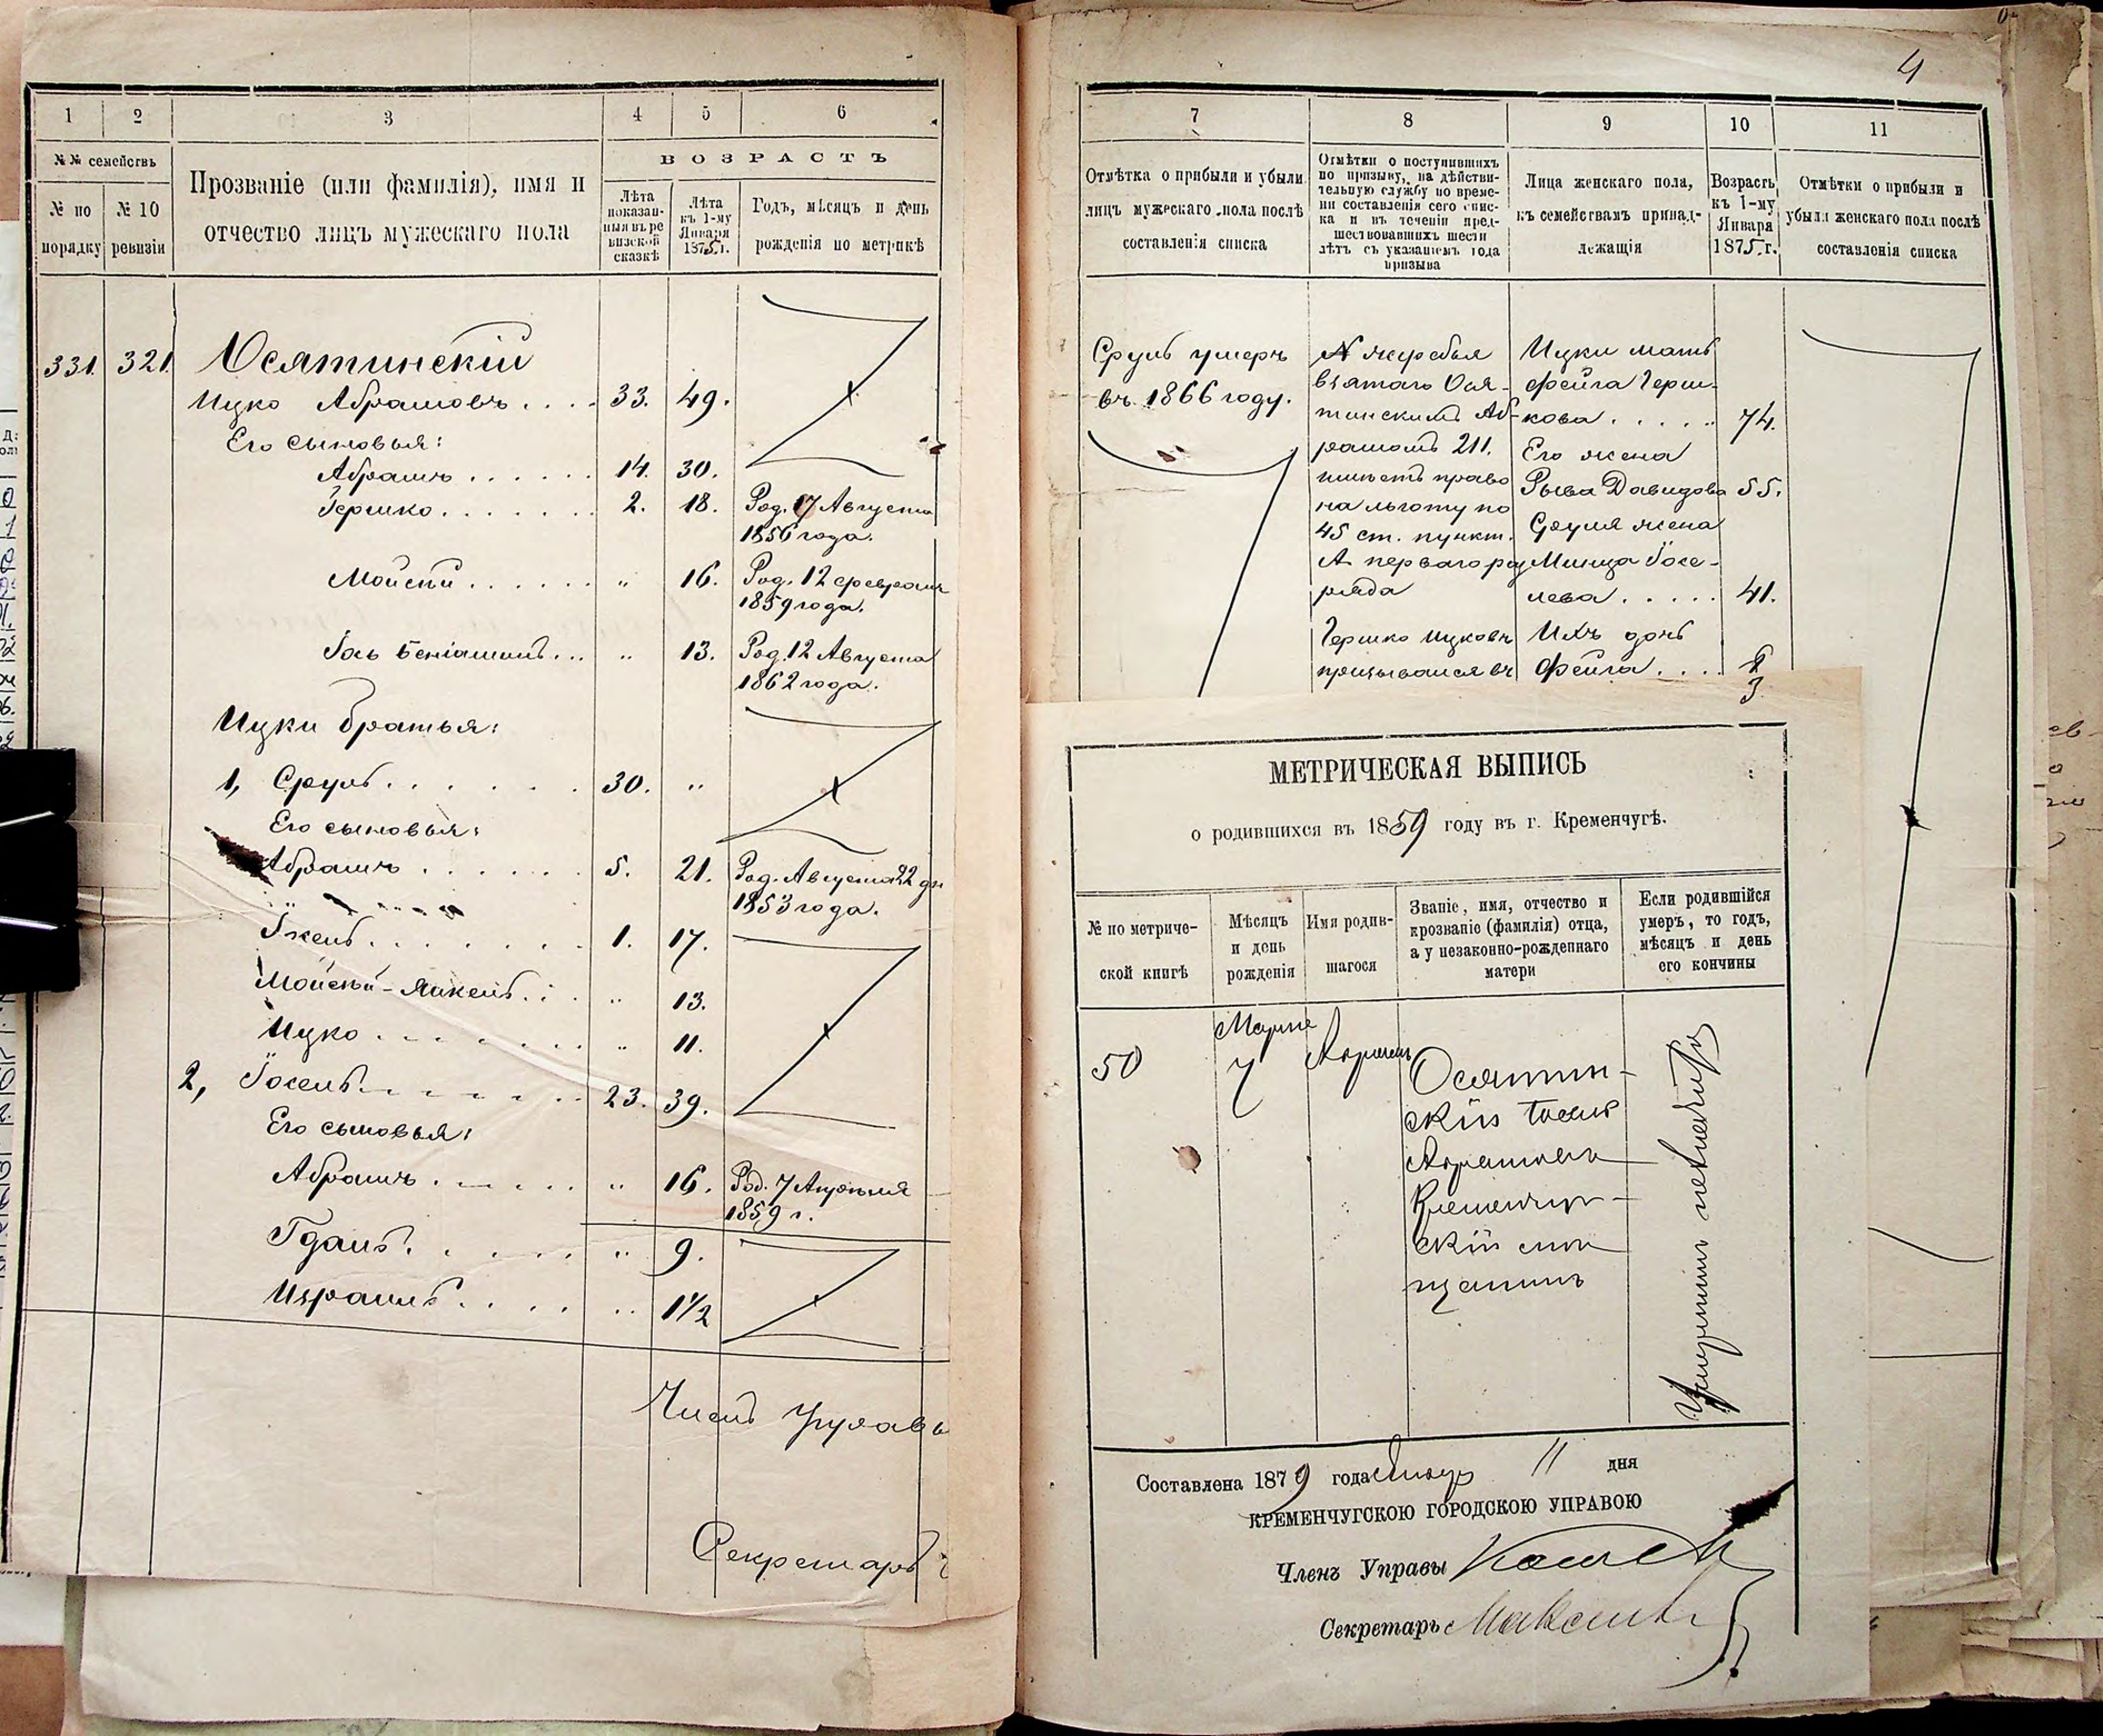 4
1 2 3 4 5 6
№№ семействъ
№ по порядку
№ 10 ревизіи
Прозваніе (или фамилія), имя и
отчество лицъ мужескаго пола
ВОЗРАСТЪ
Лѣта
показан-
ныя въ ре
визской
сказкѣ
Лѣта
къ 1-му
Января
1875 г.
Годъ, мѣсяцъ и день
рожденія по метрикѣ
331. 321. Осятинскій
Ицко Абрамовъ . . . . 33. 49.
Его сыновья:
Абрамъ . . . . . . 14. 30.
Гершко . . . . . . . 2. 18. Род. 17 Августа
1856 года.
Мойсей . . . . . . „ 16. Род. 12 февраля
1859 года.
Іось Беніаминъ . . . „ 13. Род. 12 Августа
1862 года.
Ицки братья:
1, Сруль . . . . . . 30. „
Его сыновья:
Абрамъ . . . . . . 5. 21. Род. Августа 22 дн
1853 года.
. . . . . . . 1. 17.
Мойсей-Янкель . . . „ 13.
Ицко . . . . . . . „ 11.
2, Іосель . . . . . . 23. 39.
Его сыновья:
Абрамъ . . . . . „ 16. Род. 7 Апрѣля
1859 г.
Гдаль . . . . . . „ 9.
Израиль . . . . „ 1½
Членъ Управы
Секретарь
7 8 9 10 11
Отмѣтка о прибыли и убыли
лицъ мужескаго пола послѣ
составленія списка
Отмѣтки о поступившихъ
по призыву, на дѣйстви-
тельную службу во време-
ни составленія сего спис-
ка и въ теченіи пред-
шествовавшихъ шести
лѣтъ съ указаніемъ года
призыва
Лица женскаго пола,
къ семействамъ принад-
лежащія
Возрастъ
къ 1-му
Января
1875 г.
Отмѣтки о прибыли и
убыли женскаго пола послѣ
составленія списка
Сруль умеръ
въ 1866 году.
№ жеребья
взятаго Ося-
тинскимъ Аб-
рамомъ 211.
имѣетъ право
на льготу по
45 ст. пункт.
А перваго раз
ряда
Гершко Ицковъ
призывался въ
Ицки мать
Фейга Герш-
кова . . . . . 74.
Его жена
Рыва Давидова 55.
Сруля жена
Минца Іосе-
лева . . . . . 41.
Ихъ дочь
Фейга . . . .
3
МЕТРИЧЕСКАЯ ВЫПИСЬ
о родившихся въ 1859 году въ г. Кременчугѣ.
№ по метриче-
ской книгѣ
Мѣсяцъ
и день
рожденія
Имя родив-
шагося
Званіе, имя, отчество и
прозваніе (фамилія) отца,
а у незаконно-рожденнаго
матери
Если родившійся
умеръ, то годъ,
мѣсяцъ и день
его кончины
50
7
Осятин-
скій Іосель
Абрамовъ
Кременчуг-
скій мѣ
щанинъ
Составлена 1879 года 11 дня
КРЕМЕНЧУГСКОЮ ГОРОДСКОЮ УПРАВОЮ
Членъ Управы
Секретарь